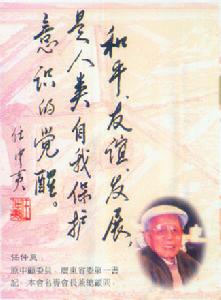 和平、友谊、发展，
是人类自我保护
意识的觉醒。
任仲夷
任仲夷：
原中顧委員、廣東省委第一書
記、本會名譽會長兼總顧問。